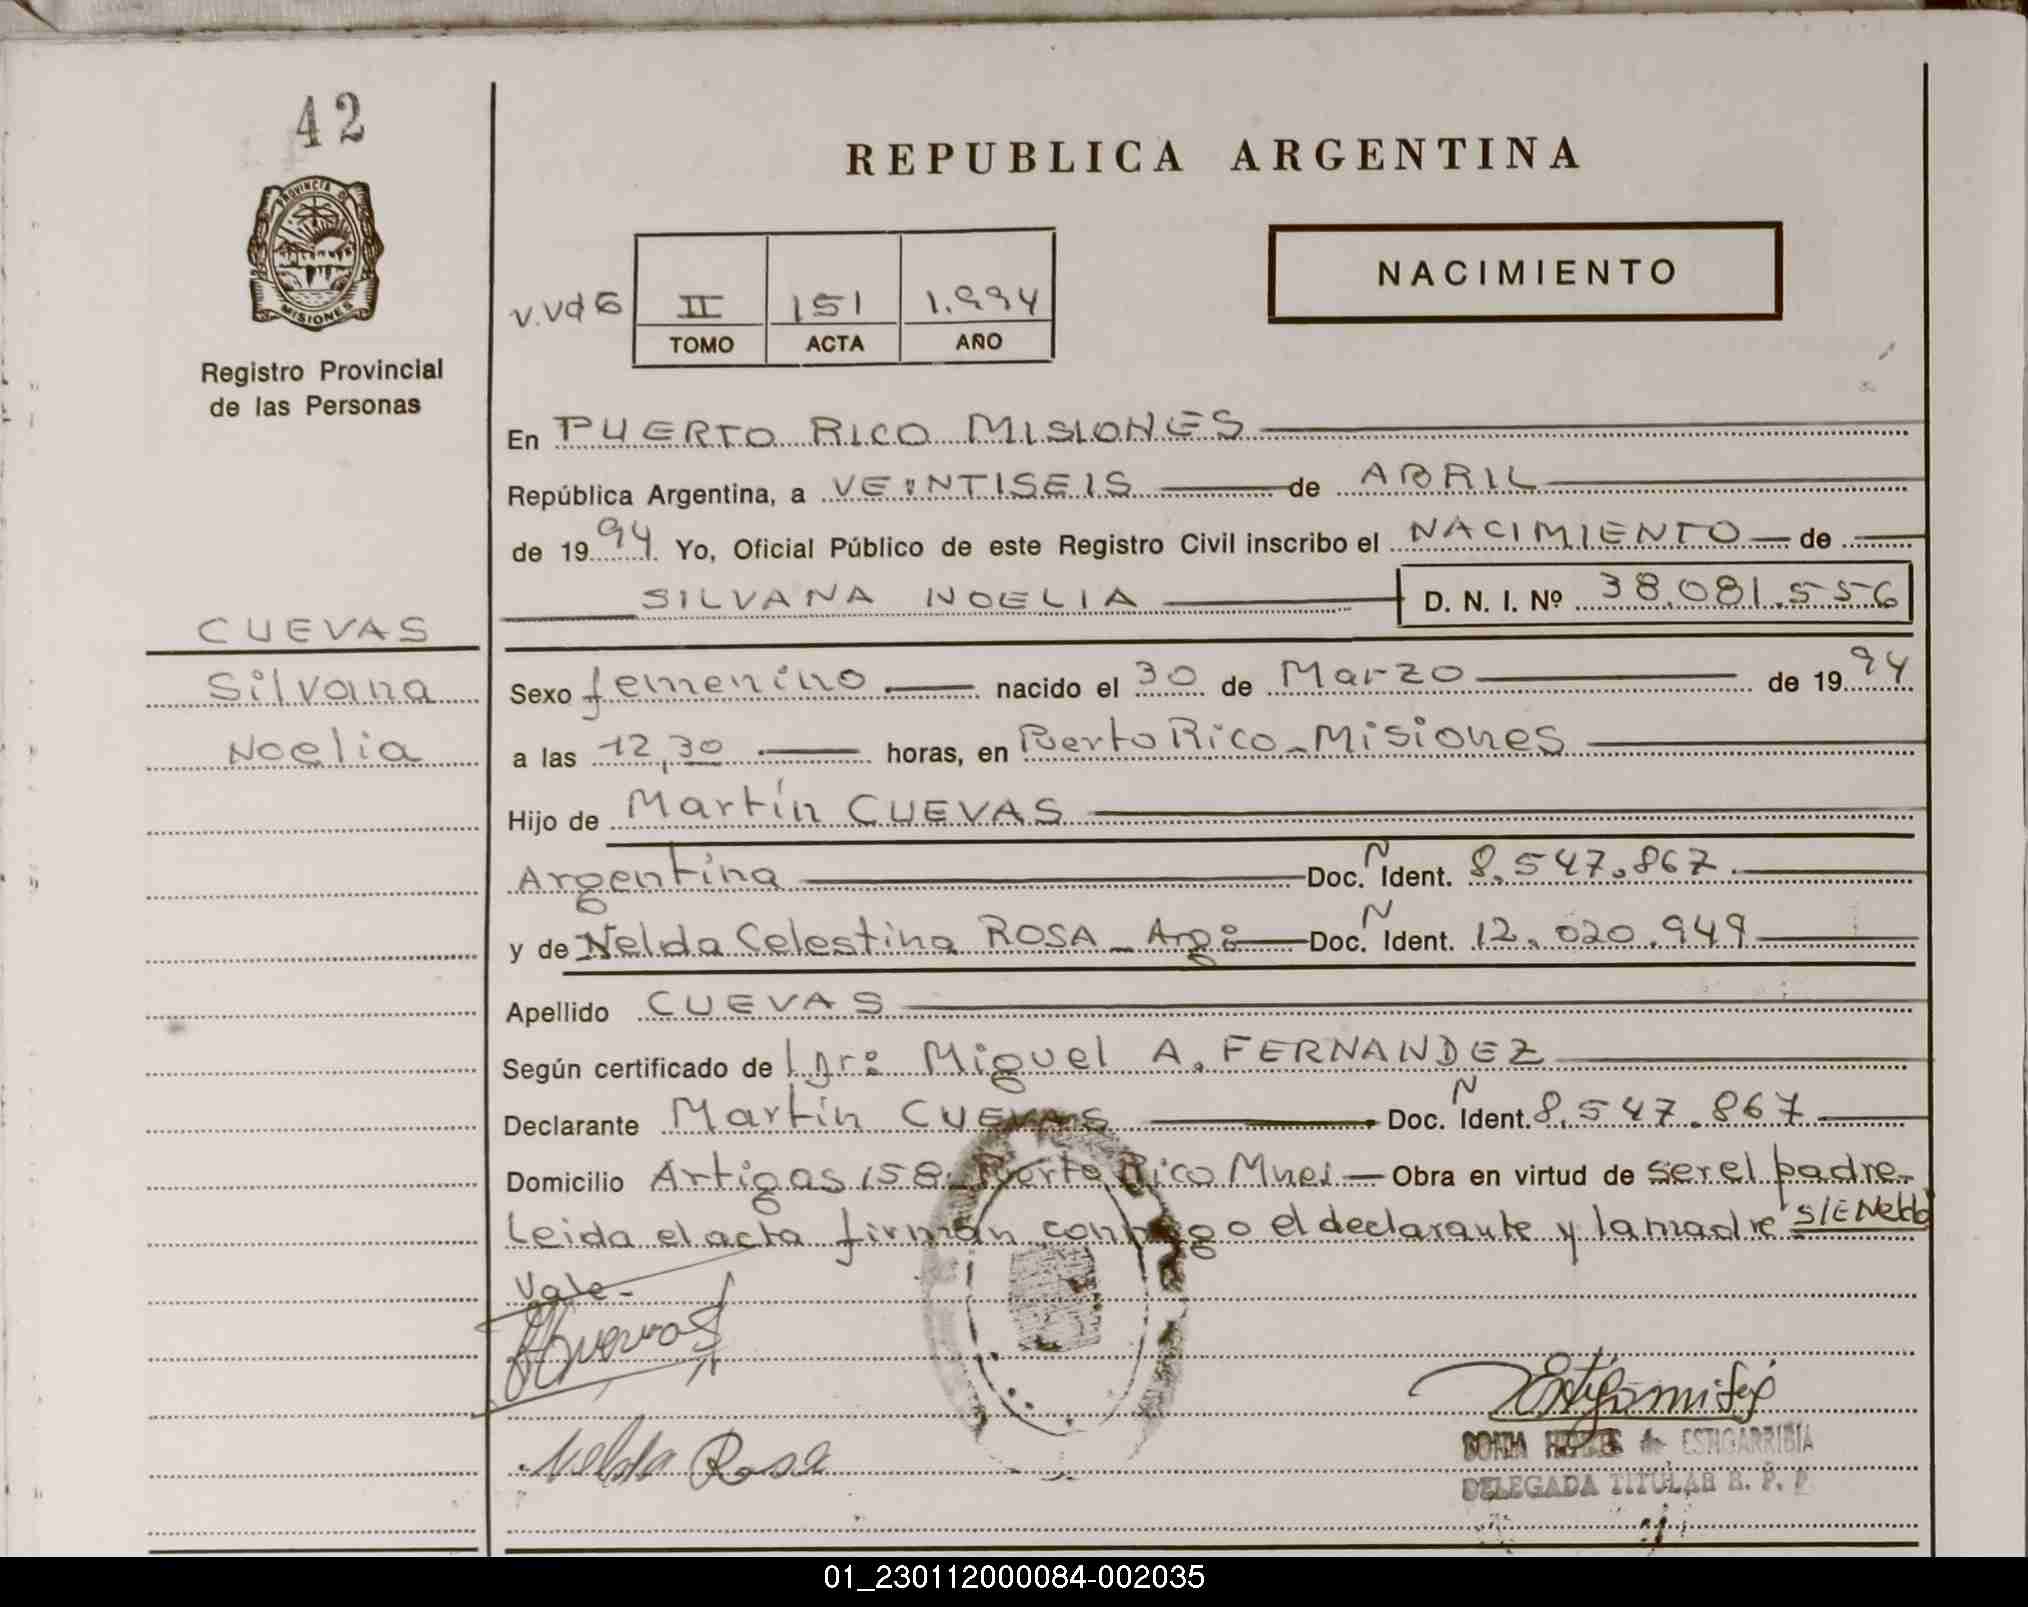 42
PROVINCIA DE
MISIONES
Registro Provincial
de las Personas
REPUBLICA ARGENTINA
NACIMIENTO
II 151 1.994
TOMO ACTA AÑO
En PUERTO RICO MISIONES
República Argentina, a VEINTISEIS de ABRIL
de 1994 Yo, Oficial Público de este Registro Civil inscribo el NACIMIENTO de
SILVANA NOELIA D. N. I. Nº 38.081.556
CUEVAS
Silvana
Noelia
Sexo femenino nacido el 30 de Marzo de 1994
a las 12,30 horas, en Puerto Rico - Misiones
Hijo de Martín CUEVAS
Argentina Doc. N Ident. 8.547.867
y de Nelda Celestina ROSA - Arg: Doc. N Ident. 12.020.949
Apellido CUEVAS
Según certificado de Miguel A. FERNANDEZ
Declarante Martín CUEVAS Doc. N Ident. 8.547.867
Domicilio Artigas 158 - Puerto Rico Mnes - Obra en virtud de ser el padre -
Leida el acta firman conmigo el declarante y la madre S/E Nelda
Vale -
Nelda Rosa
de ESTIGARRIBIA
DELEGADA TITULAR R. P. P
01_230112000084-002035